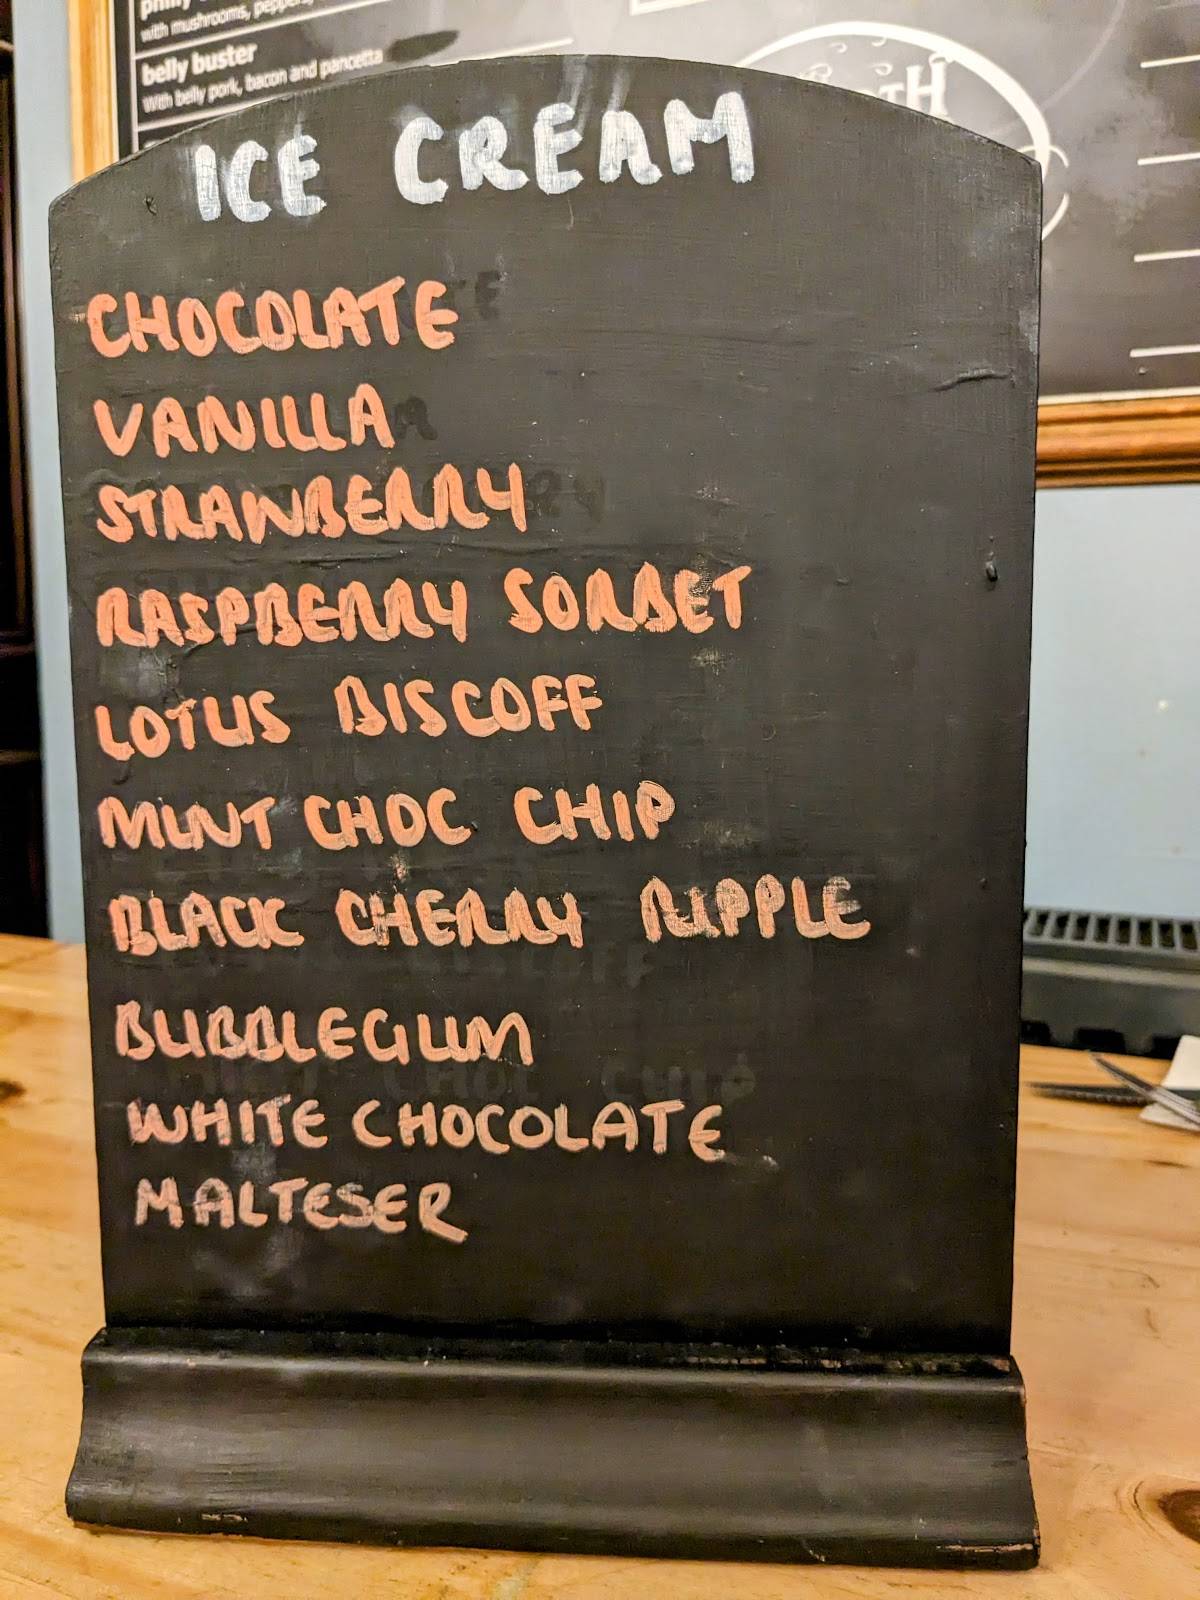 with mushrooms, peppers,
belly buster
With belly pork, bacon and pancetta
ICE CREAM
CHOCOLATE
VANILLA
STRAWBERRY
RASPBERRY SORBET
LOTUS BISCOFF
MINT CHOC CHIP
BLACK CHERRY RIPPLE
BUBBLEGUM
WHITE CHOCOLATE
MALTESER